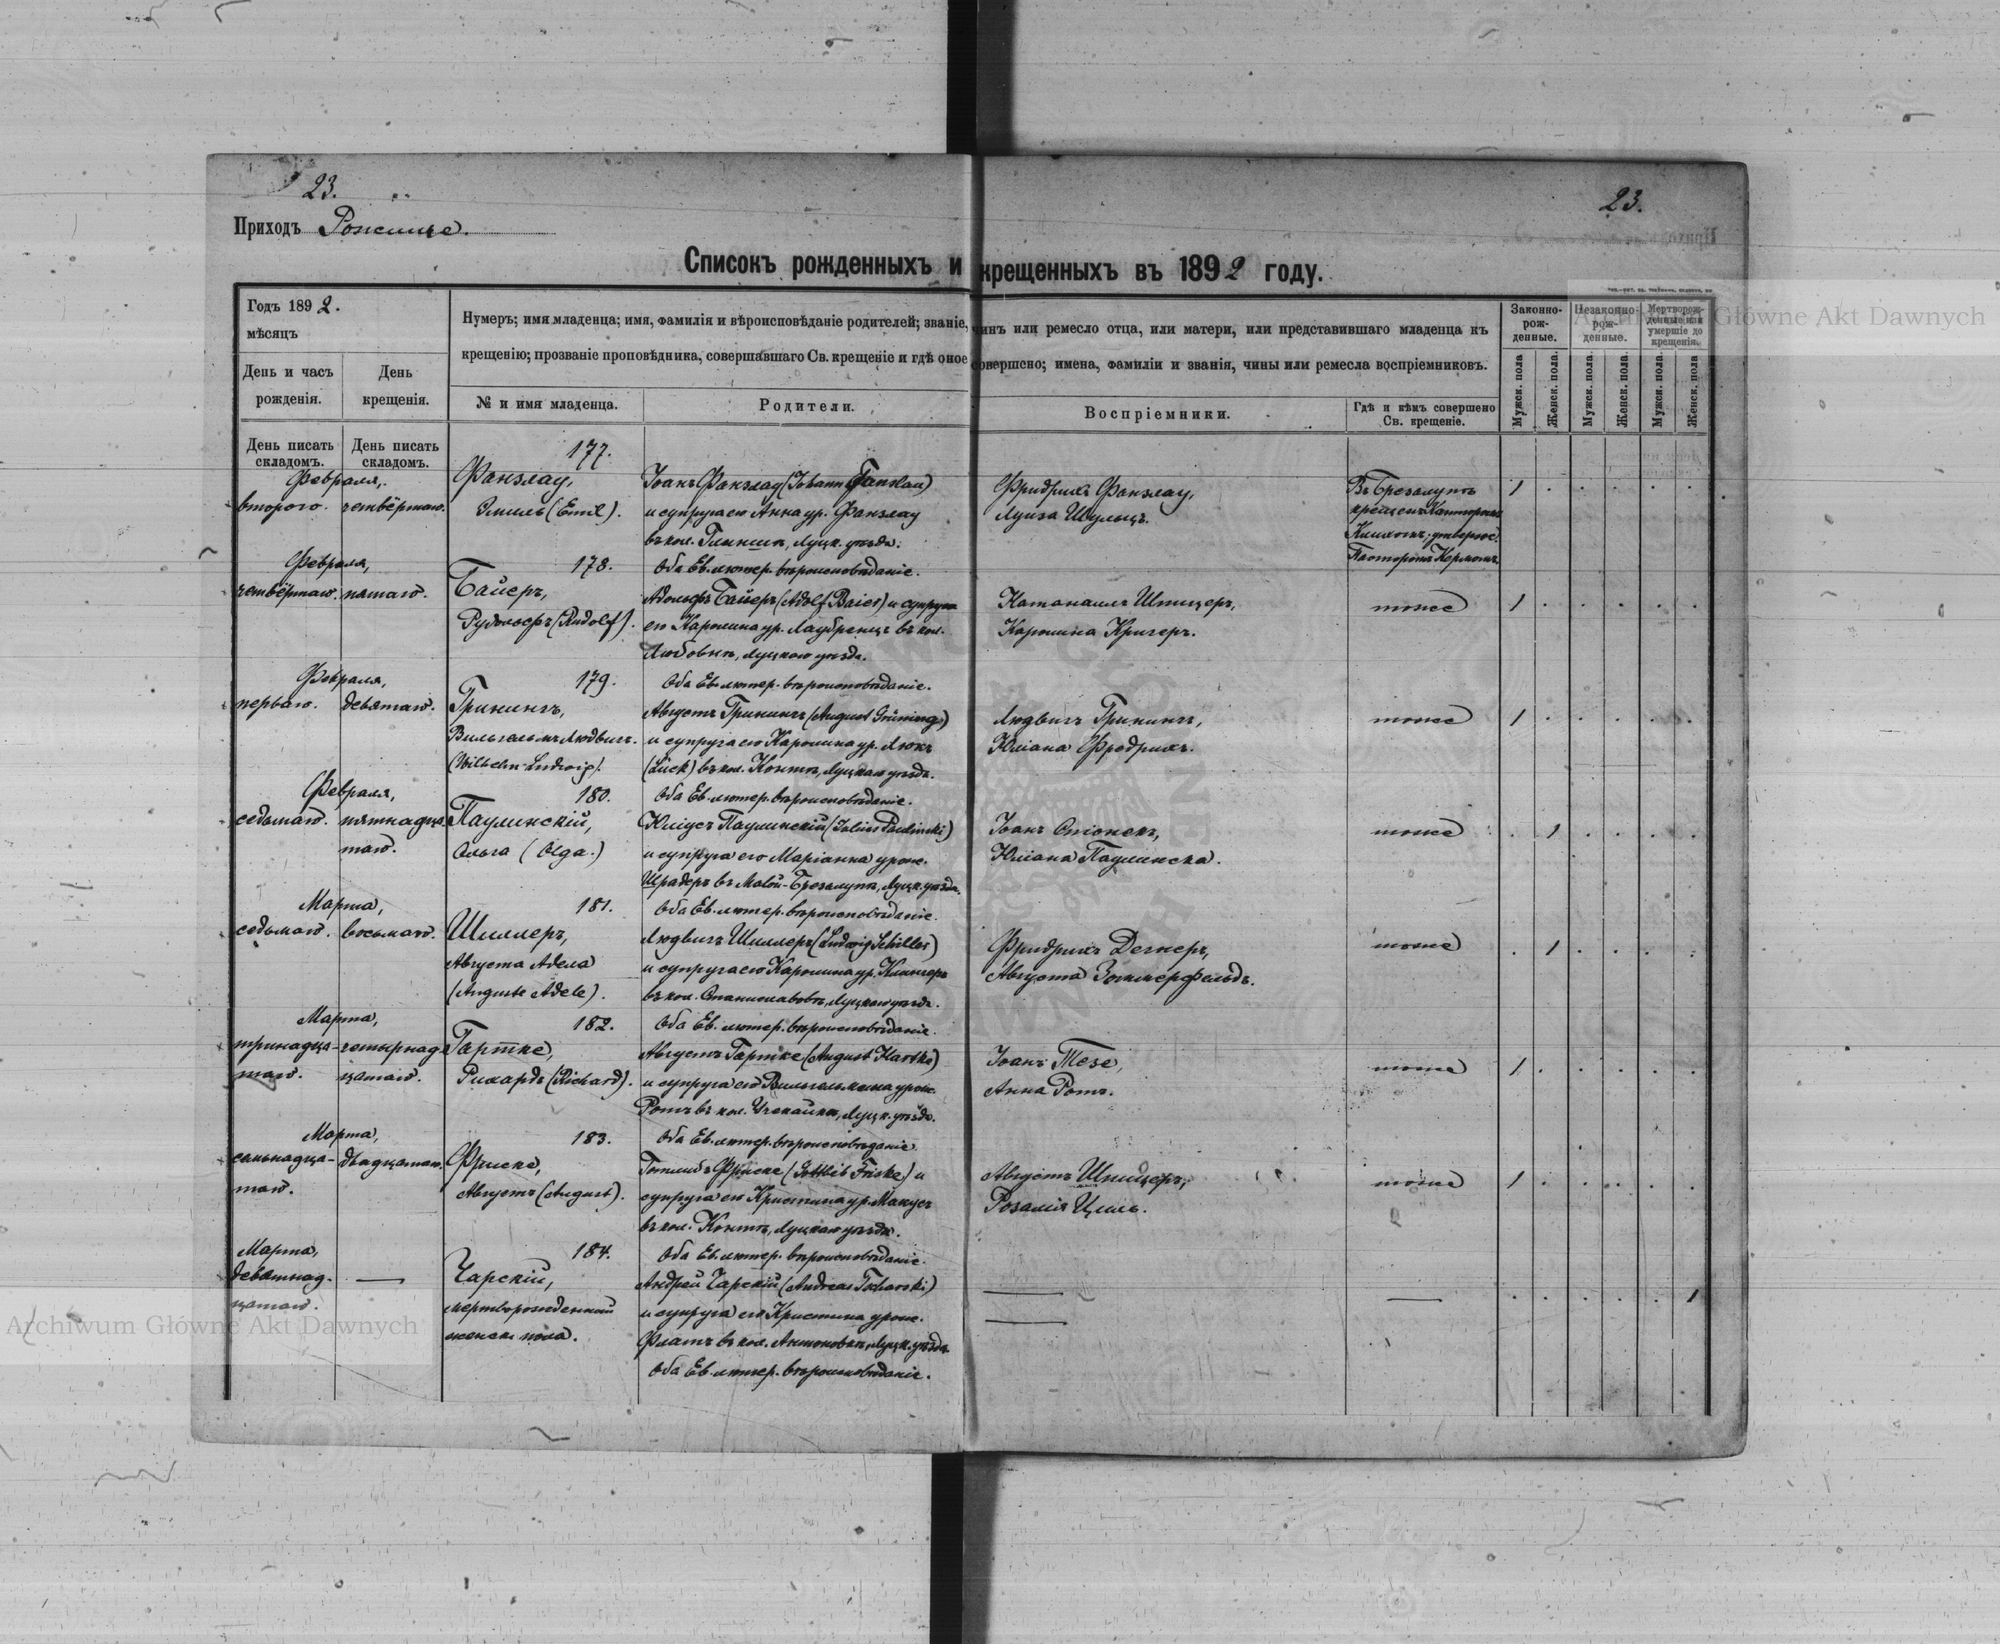 23.
23.
Приходъ Рожище.
Списокъ рожденныхъ и крещенныхъ въ 1892 году.
Годъ 1892.
мѣсяцъ
Нумеръ; имя младенца; имя, фамилія и вѣроисповѣданіе родителей; званіе, чинъ или ремесло отца, или матери, или представившаго младенца къ
крещенію; прозваніе проповѣдника, совершавшаго Св. крещеніе и гдѣ оное совершено; имена, фамиліи и званія, чины или ремесла воспріемниковъ.
Законно-
рож-
денные.
Незаконно-
рож-
денные.
Мертворож-
денные или
умершіе до
крещенія.
День и часъ
рожденія.
День
крещенія.
№ и имя младенца.
Родители.
Воспріемники.
Гдѣ и кѣмъ совершено
Св. крещеніе.
Мужск. пола
Женск. пола.
Мужск. пола.
Женск. пола.
Мужск. пола.
Женск. пола
День писать
складомъ.
День писать
складомъ.
177.
Февраля,
второго. четвёртаго.
Фанзлау,
Эмиль (Emil).
Іоанъ Фанзлау (Johann Fanslau)
и супруга его Анна ур. Фанзлау
въ кол. Луцк. уѣзда.
Оба Ев. лютер. вѣроисповѣданіе.
Фридрихъ Фанзлау,
Луиза Шульцъ.
Въ Брезалупѣ
крещенъ Канторомъ
Пасторомъ Кермомъ
1
178.
Февраля,
четвёртаго. пятаго.
Байеръ,
Рудольфъ (Rudolf).
Адольфъ Байеръ (Adolf Baier) и супруга
его Каролина ур. Лаубренцъ въ кол.
Любовкѣ, Луцкаго уѣзда.
Оба Ев. лютер. вѣроисповѣданіе.
Шпицеръ,
Каролина Кригеръ.
тоже
1
179.
Февраля,
перваго. девятаго.
Гринингъ,
Вильгельмъ Людвигъ.
(Wilhelm Ludwig).
Августъ Гринингъ (August Grüning)
и супруга его Каролина ур. Люкъ
(Lück) въ кол. Контѣ, Луцкаго уѣзда.
Оба Ев. лютер. вѣроисповѣданіе.
Людвигъ Гринингъ,
Юліана Фредрихъ.
тоже
1
180.
Февраля,
седьмаго. пятнадца
таго.
Паулинскій,
Ольга (Olga.)
Юліусъ Паулинскій (Julius Paulinski)
и супруга его Маріанна урож.
Шрадеръ въ Малой-Брезалупѣ, Луцк. уѣзда.
Оба Ев. лютер. вѣроисповѣданіе.
Іоанъ Опіонекъ,
Юліана Паулинска.
тоже
1
181.
Марта,
седьмаго. восьмаго.
Шиллеръ,
Августа Адела
(Auguste Adele).
Людвигъ Шиллеръ (Ludwig Schiller)
и супруга его Каролина ур.
въ кол. Станиславовкѣ, Луцкаго уѣзда.
Оба Ев. лютер. вѣроисповѣданіе.
Фридрихъ Дегнеръ,
Августа Зоммерфельдъ.
тоже
1
182.
Марта,
тринадца- четырнад
таго. цатаго.
Гартке,
Рихардъ (Richard).
Августъ Гартке (August Hartke)
и супруга его Вильгельмина урож.
Ротъ въ кол. Луцк. уѣзда.
Оба Ев. лютер. вѣроисповѣданіе.
Іоанъ Тезе,
Анна Ротъ.
тоже
1
183.
Марта,
семьнадца- двадцатаго.
таго.
Фриске,
Августъ (August).
Готлибъ Фриске (Gottlieb Friske) и
супруга его Кристина ур. Манусъ
въ кол. Контѣ, Луцкаго уѣзда.
Оба Ев. лютер. вѣроисповѣданіе.
Августъ Шпицеръ,
Розалія Циль.
тоже
1
184.
Марта,
девятнад-
цатаго.
Чарскій,
мертворожденный
женск. пола.
Андрей Чарскій (Andreas Tscharski)
и супруга его Кристина урож.
Флатъ въ кол. Антоновкѣ, Луцк. уѣзда.
Оба Ев. лютер. вѣроисповѣданіе.
1
Archiwum Główne Akt Dawnych
Archiwum Główne Akt Dawnych